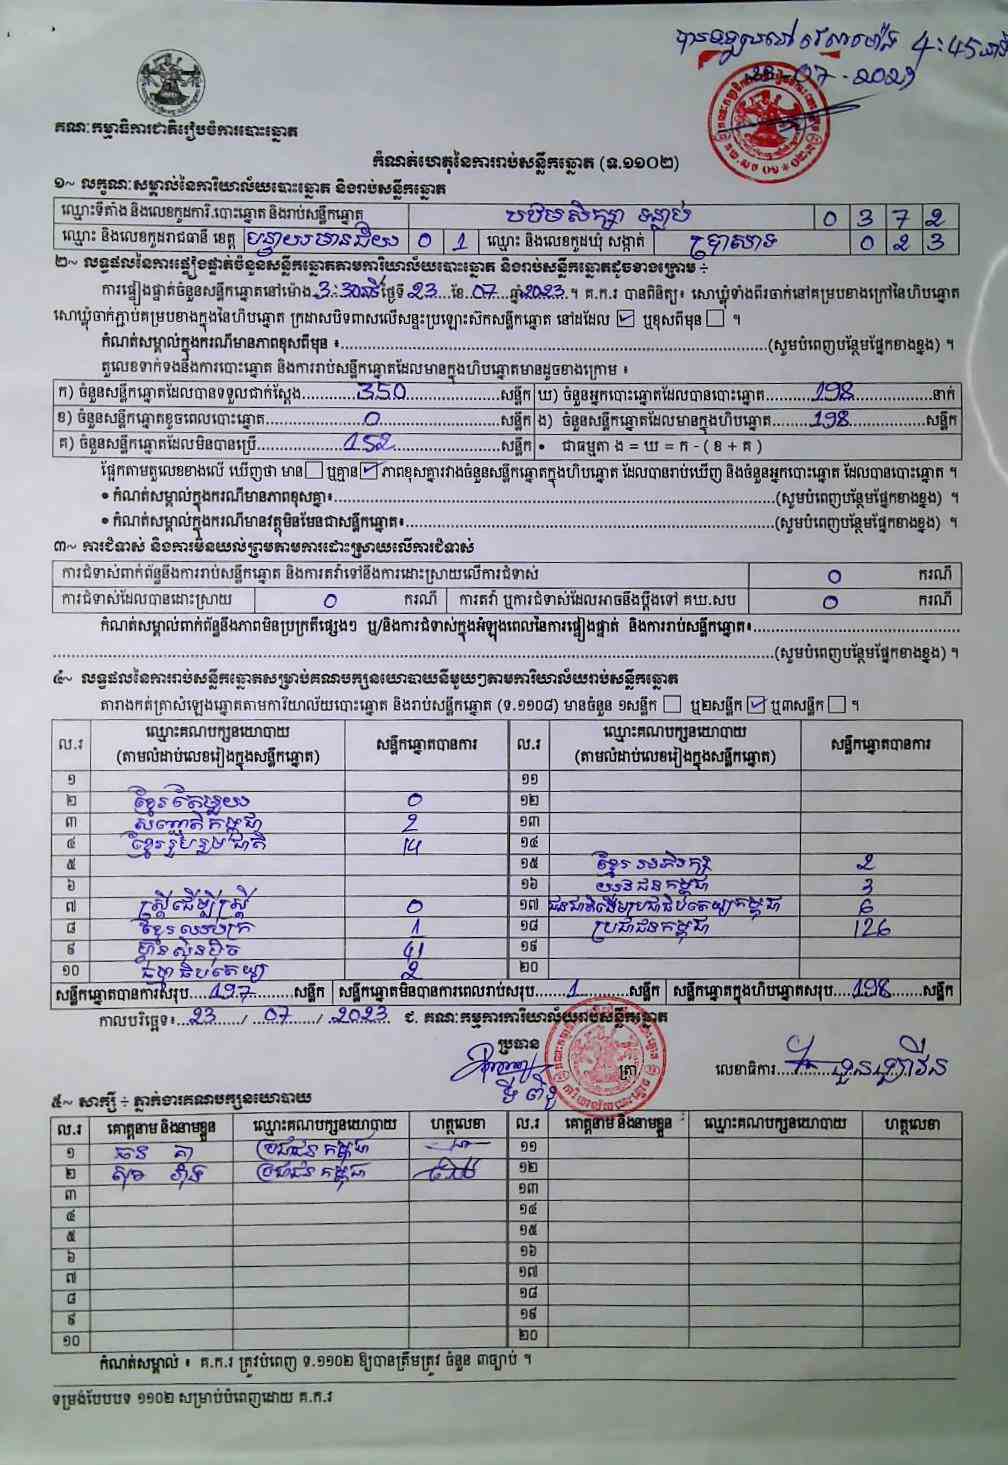 បានទទួលនៅវេលាម៉ោង 4:45នាទី
23-07-2023
គណៈកម្មាធិការជាតិរៀបចំការបោះឆ្នោត
កំណត់ហេតុនៃការរាប់សន្លឹកឆ្នោត (ទ.១១០២)
១~ លក្ខណៈសម្គាល់នៃការិយាល័យបោះឆ្នោត និងរាប់សន្លឹកឆ្នោត
ឈ្មោះទីតាំង និងលេខកូដការិ.បោះឆ្នោត និងរាប់សន្លឹកឆ្នោត បឋមសិក្សា ទន្លាប់ 0 3 7 2
ឈ្មោះ និងលេខកូដរាជធានី ខេត្ត បន្ទាយមានជ័យ 0 1 ឈ្មោះ និងលេខកូដឃុំ សង្កាត់ ប្រាសាទ 0 2 3
២~ លទ្ធផលនៃការផ្ទៀងផ្ទាត់ចំនួនសន្លឹកឆ្នោតតាមការិយាល័យបោះឆ្នោត និងរាប់សន្លឹកឆ្នោតដូចខាងក្រោម ÷
ការផ្ទៀងផ្ទាត់ចំនួនសន្លឹកឆ្នោតនៅម៉ោង 3:30នាទី ថ្ងៃទី 23 ខែ 07 ឆ្នាំ 2023។ គ.ក.រ បានពិនិត្យ៖ សោឃ្លុំទាំងពីរចាក់នៅគម្របខាងក្រៅនៃហិបឆ្នោត
សោឃ្លុំចាក់ភ្ជាប់គម្របខាងក្នុងនៃហិបឆ្នោត ក្រដាសបិទពាសលើសន្ទះប្រឡោះស៊កសន្លឹកឆ្នោត នៅដដែល ☑ ឬខុសពីមុន ☐ ។
កំណត់សម្គាល់ក្នុងករណីមានភាពខុសពីមុន ៖ (សូមបំពេញបន្ថែមផ្នែកខាងខ្នង) ។
តួលេខទាក់ទងនឹងការបោះឆ្នោត និងការរាប់សន្លឹកឆ្នោតដែលមានក្នុងហិបឆ្នោតមានដូចខាងក្រោម ៖
ក) ចំនួនសន្លឹកឆ្នោតដែលបានទទួលជាក់ស្តែង 350 សន្លឹក ឃ) ចំនួនអ្នកបោះឆ្នោតដែលបានបោះឆ្នោត 198 នាក់
ខ) ចំនួនសន្លឹកឆ្នោតខូចពេលបោះឆ្នោត 0 សន្លឹក ង) ចំនួនសន្លឹកឆ្នោតដែលមានក្នុងហិបឆ្នោត 198 សន្លឹក
គ) ចំនួនសន្លឹកឆ្នោតដែលមិនបានប្រើ 152 សន្លឹក • ជាធម្មតា ង = ឃ = ក - ( ខ + គ )
ផ្អែកតាមតួលេខខាងលើ ឃើញថា មាន ☐ ឬគ្មាន ☑ ភាពខុសគ្នារវាងចំនួនសន្លឹកឆ្នោតក្នុងហិបឆ្នោត ដែលបានរាប់ឃើញ និងចំនួនអ្នកបោះឆ្នោត ដែលបានបោះឆ្នោត ។
• កំណត់សម្គាល់ក្នុងករណីមានភាពខុសគ្នា៖ (សូមបំពេញបន្ថែមផ្នែកខាងខ្នង) ។
• កំណត់សម្គាល់ក្នុងករណីមានវត្ថុមិនមែនជាសន្លឹកឆ្នោត៖ (សូមបំពេញបន្ថែមផ្នែកខាងខ្នង) ។
៣~ ការជំទាស់ និងការមិនយល់ព្រមតាមការដោះស្រាយលើការជំទាស់
ការជំទាស់ពាក់ព័ន្ធនឹងការរាប់សន្លឹកឆ្នោត និងការតវ៉ាទៅនឹងការដោះស្រាយលើការជំទាស់ 0 ករណី
ការជំទាស់ដែលបានដោះស្រាយ 0 ករណី ការតវ៉ា ឬការជំទាស់ដែលអាចនឹងប្តឹងទៅ គឃ.សប 0 ករណី
កំណត់សម្គាល់ពាក់ព័ន្ធនឹងភាពមិនប្រក្រតីផ្សេងៗ ឬ/និងការជំទាស់ក្នុងអំឡុងពេលនៃការផ្ទៀងផ្ទាត់ និងការរាប់សន្លឹកឆ្នោត៖
(សូមបំពេញបន្ថែមផ្នែកខាងខ្នង) ។
៤~ លទ្ធផលនៃការរាប់សន្លឹកឆ្នោតសម្រាប់គណបក្សនយោបាយនីមួយៗតាមការិយាល័យរាប់សន្លឹកឆ្នោត
តារាងកត់ត្រាសំឡេងឆ្នោតតាមការិយាល័យបោះឆ្នោត និងរាប់សន្លឹកឆ្នោត (ទ.១១០៨) មានចំនួន ១សន្លឹក ☐ ឬ២សន្លឹក ☑ ឬ៣សន្លឹក ☐ ។
ល.រ ឈ្មោះគណបក្សនយោបាយ (តាមលំដាប់លេខរៀងក្នុងសន្លឹកឆ្នោត) សន្លឹកឆ្នោតបានការ ល.រ ឈ្មោះគណបក្សនយោបាយ (តាមលំដាប់លេខរៀងក្នុងសន្លឹកឆ្នោត) សន្លឹកឆ្នោតបានការ
១ ១១
២ ខ្មែរតែមួយ 0 ១២
៣ សញ្ជាតិកម្ពុជា 2 ១៣
៤ ខ្មែររួបរួមជាតិ 14 ១៤
៥ ១៥ ខ្មែរអភិរក្ស 2
៦ ១៦ យុវជនកម្ពុជា 3
៧ ស្ត្រីដើម្បីស្ត្រី 0 ១៧ ជនជាតិដើមប្រជាធិបតេយ្យកម្ពុជា 6
៨ ខ្មែរឈប់ក្រ 1 ១៨ ប្រជាជនកម្ពុជា 126
៩ ហ៊្វុនស៊ិនប៉ិច 41 ១៩
១០ ធម្មាធិបតេយ្យ 2 ២០
សន្លឹកឆ្នោតបានការសរុប 197 សន្លឹក សន្លឹកឆ្នោតមិនបានការពេលរាប់សរុប 1 សន្លឹក សន្លឹកឆ្នោតក្នុងហិបឆ្នោតសរុប 198 សន្លឹក
កាលបរិច្ឆេទ៖ 23 / 07 / 2023 ជ. គណៈកម្មការការិយាល័យរាប់សន្លឹកឆ្នោត
ប្រធាន ត្រា លេខាធិការ
៥~ សាក្សី ÷ ភ្នាក់ងារគណបក្សនយោបាយ
ល.រ គោត្តនាម និងនាមខ្លួន ឈ្មោះគណបក្សនយោបាយ ហត្ថលេខា ល.រ គោត្តនាម និងនាមខ្លួន ឈ្មោះគណបក្សនយោបាយ ហត្ថលេខា
១ ប្រជាជនកម្ពុជា ១១
២ ប្រជាជនកម្ពុជា ១២
៣ ១៣
៤ ១៤
៥ ១៥
៦ ១៦
៧ ១៧
៨ ១៨
៩ ១៩
១០ ២០
កំណត់សម្គាល់ ៖ គ.ក.រ ត្រូវបំពេញ ទ.១១០២ ឱ្យបានត្រឹមត្រូវ ចំនួន ៣ច្បាប់ ។
ទម្រង់បែបបទ ១១០២ សម្រាប់បំពេញដោយ គ.ក.រ